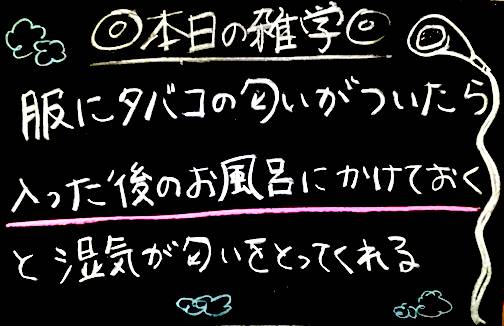 ◎本日の雑学◎
服にタバコの匂いがついたら
入った後のお風呂にかけておく
と湿気が匂いをとってくれる